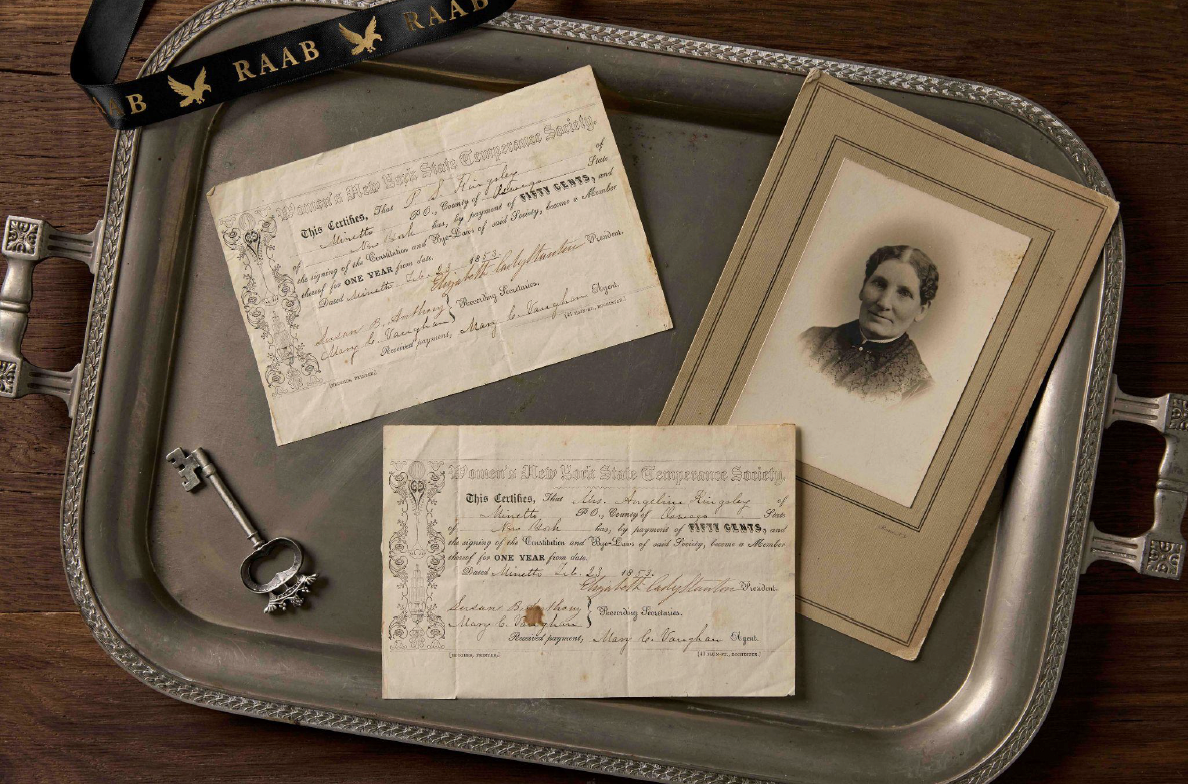 RAAB RAAB
AB
Women's New York State Temperance Society.
This Certifies, That P. S. Kingsley of
Minetto P.O., County of Oswego State
of New York has, by payment of FIFTY CENTS, and
the signing of the Constitution and Bye-Laws of said Society, become a Member
thereof for ONE YEAR from date.
Dated Minetto Feb. 185
Elizabeth Cady Stanton President.
Susan B. Anthony
Mary C. Vaughan } Recording Secretaries.
Received payment, Mary C. Vaughan Agent.
Women's New York State Temperance Society.
This Certifies, That Mrs. Angeline Kingsley of
Minetto P.O., County of Oswego State
of New York has, by payment of FIFTY CENTS, and
the signing of the Constitution and Bye-Laws of said Society, become a Member
thereof for ONE YEAR from date.
Dated Minetto Feb. 23 1853.
Elizabeth Cady Stanton President.
Susan B. Anthony
Mary C. Vaughan } Recording Secretaries.
Received payment, Mary C. Vaughan Agent.